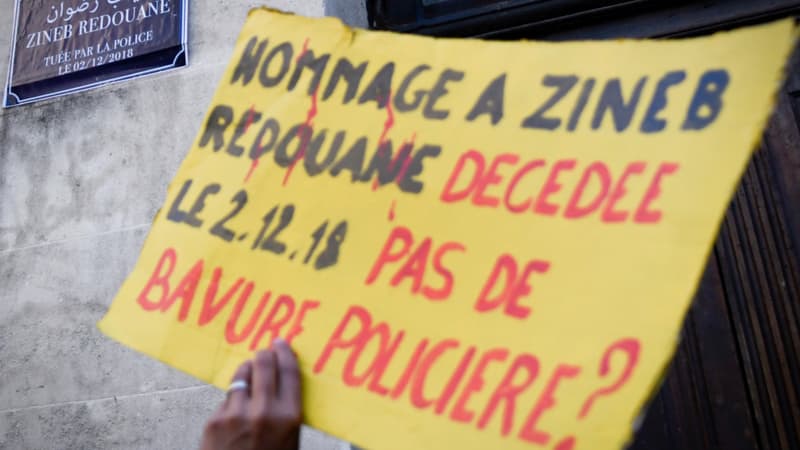 رضوان
ZINEB REDOUANE
TUÉE PAR LA POLICE
LE 02/12/2018
HOMMAGE A ZINEB
REDOUANE DECEDEE
LE 2.12.18 PAS DE
BAVURE POLICIERE?